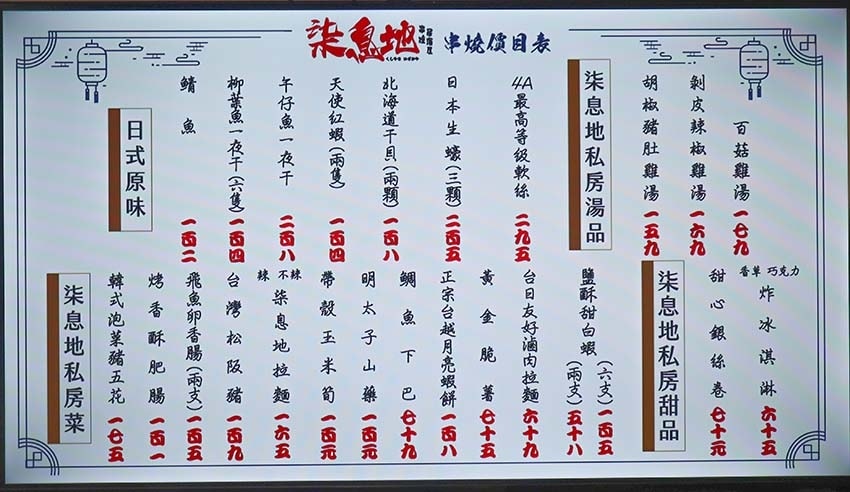 柒息地
串燒價目表
柒息地私房湯品
百菇雞湯 一七九
剝皮辣椒雞湯 一六九
胡椒豬肚雞湯 一五九
日式原味
4A最高等級軟絲 二九五
日本生蠔(三顆) 二百五
北海道干貝(兩顆) 一百八
天使紅蝦(兩隻) 一百四
午仔魚一夜干 二百八
柳葉魚一夜干(六隻) 一百四
鯖魚 一百二
柒息地私房甜品
香草 巧克力
炸冰淇淋 六十五
甜心銀絲卷 七十元
柒息地私房菜
鹽酥甜白蝦
(六支) 一百五
(兩支) 五十八
台日友好滷肉拉麵 六十九
黃金脆薯 七十五
正宗台越月亮蝦餅 一百八
鯛魚下巴 七十九
明太子山藥 一百元
帶殼玉米筍 一百元
辣 不辣
柒息地拉麵 一六五
台灣松阪豬 一五九
飛魚卵香腸(兩支) 一百五
烤香酥肥腸 一百一
韓式泡菜豬五花 一七五